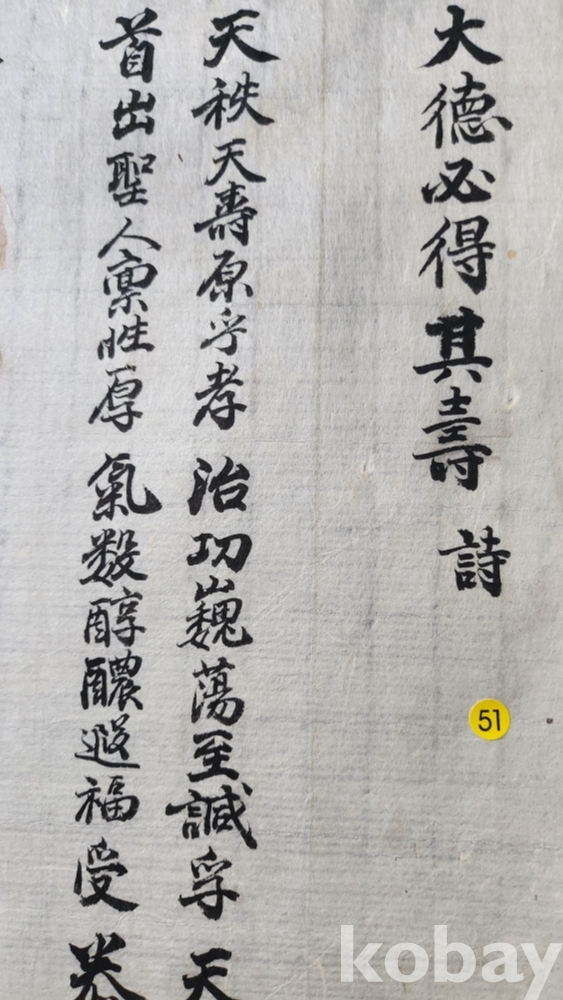 大德必得其壽 詩
天秩天壽原乎孝 治功巍蕩至諴孚 天
首出聖人稟性厚 氣數醇醲遐福受
51
kobay